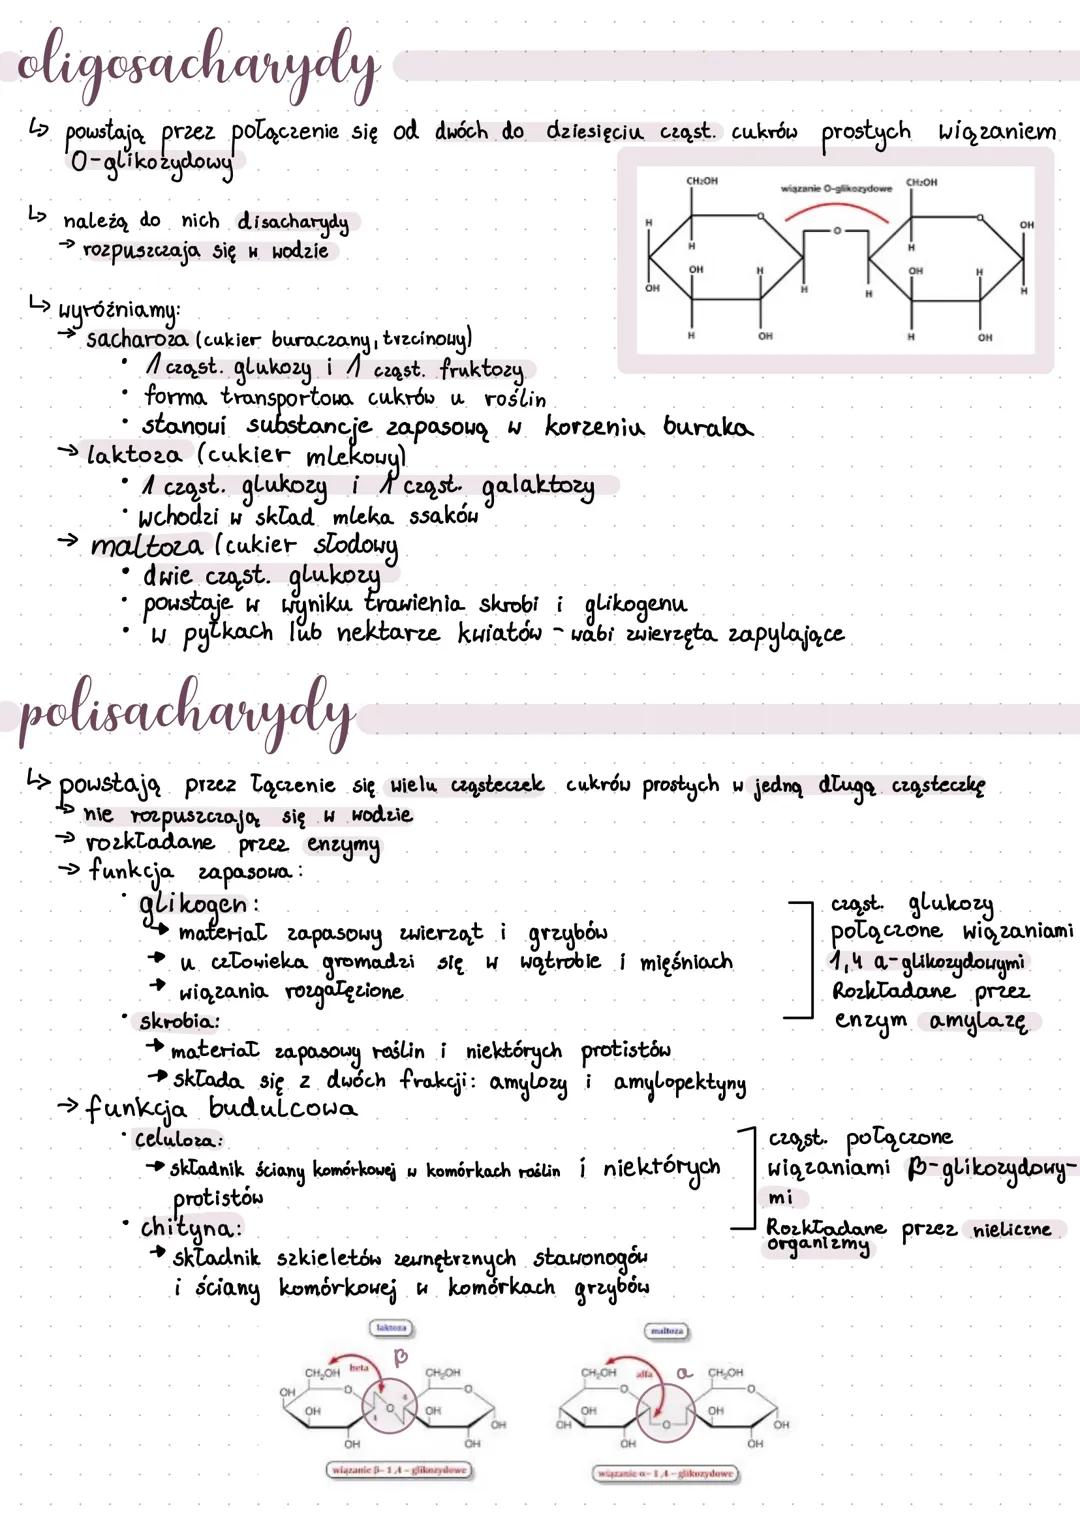 oligosacharydy
↳ powstają przez połączenie się od dwóch do dziesięciu cząst. cukrów prostych wiązaniem
O-glikozydowy
CH₂OH wiązanie O-glikozydowe CH₂OH
H O O OH
H O H
OH H OH H
OH H H H
H OH H OH
↳ należą do nich disacharydy
→ rozpuszczaja się w wodzie
↳ wyróżniamy:
→ sacharoza (cukier buraczany, trzcinowy)
• 1 cząst. glukozy i 1 cząst. fruktozy
• forma transportowa cukrów u roślin
• stanowi substancje zapasową w korzeniu buraka
→ laktoza (cukier mlekowy)
• 1 cząst. glukozy i 1 cząst. galaktozy
• wchodzi w skład mleka ssaków
→ maltoza (cukier słodowy
• dwie cząst. glukozy
• powstaje w wyniku trawienia skrobi i glikogenu
• w pyłkach lub nektarze kwiatów - wabi zwierzęta zapylające
polisacharydy
↳ powstają przez łączenie się wielu cząsteczek cukrów prostych w jedną długą cząsteczkę
→ nie rozpuszczają się w wodzie
→ rozkładane przez enzymy
→ funkcja zapasowa:
• glikogen:
→ materiał zapasowy zwierząt i grzybów
→ u człowieka gromadzi się w wątrobie i mięśniach
→ wiązania rozgałęzione
• skrobia:
→ materiał zapasowy roślin i niektórych protistów
→ składa się z dwóch frakcji: amylozy i amylopektyny
cząst. glukozy
połączone wiązaniami
1,4 α-glikozydowymi
Rozkładane przez
enzym amylazę
→ funkcja budulcowa
• celuloza:
→ składnik ściany komórkowej w komórkach roślin i niektórych
protistów
• chityna:
→ składnik szkieletów zewnętrznych stawonogów
i ściany komórkowej w komórkach grzybów
cząst. połączone
wiązaniami β-glikozydowy-
mi
Rozkładane przez nieliczne
organizmy
laktoza
beta β
CH₂OH CH₂OH
OH O O
OH O OH
1 4
OH
OH OH
wiązanie β-1,4-glikozydowe
maltoza
alfa α
CH₂OH CH₂OH
O O
OH OH
OH O OH
OH OH
wiązanie α-1,4-glikozydowe